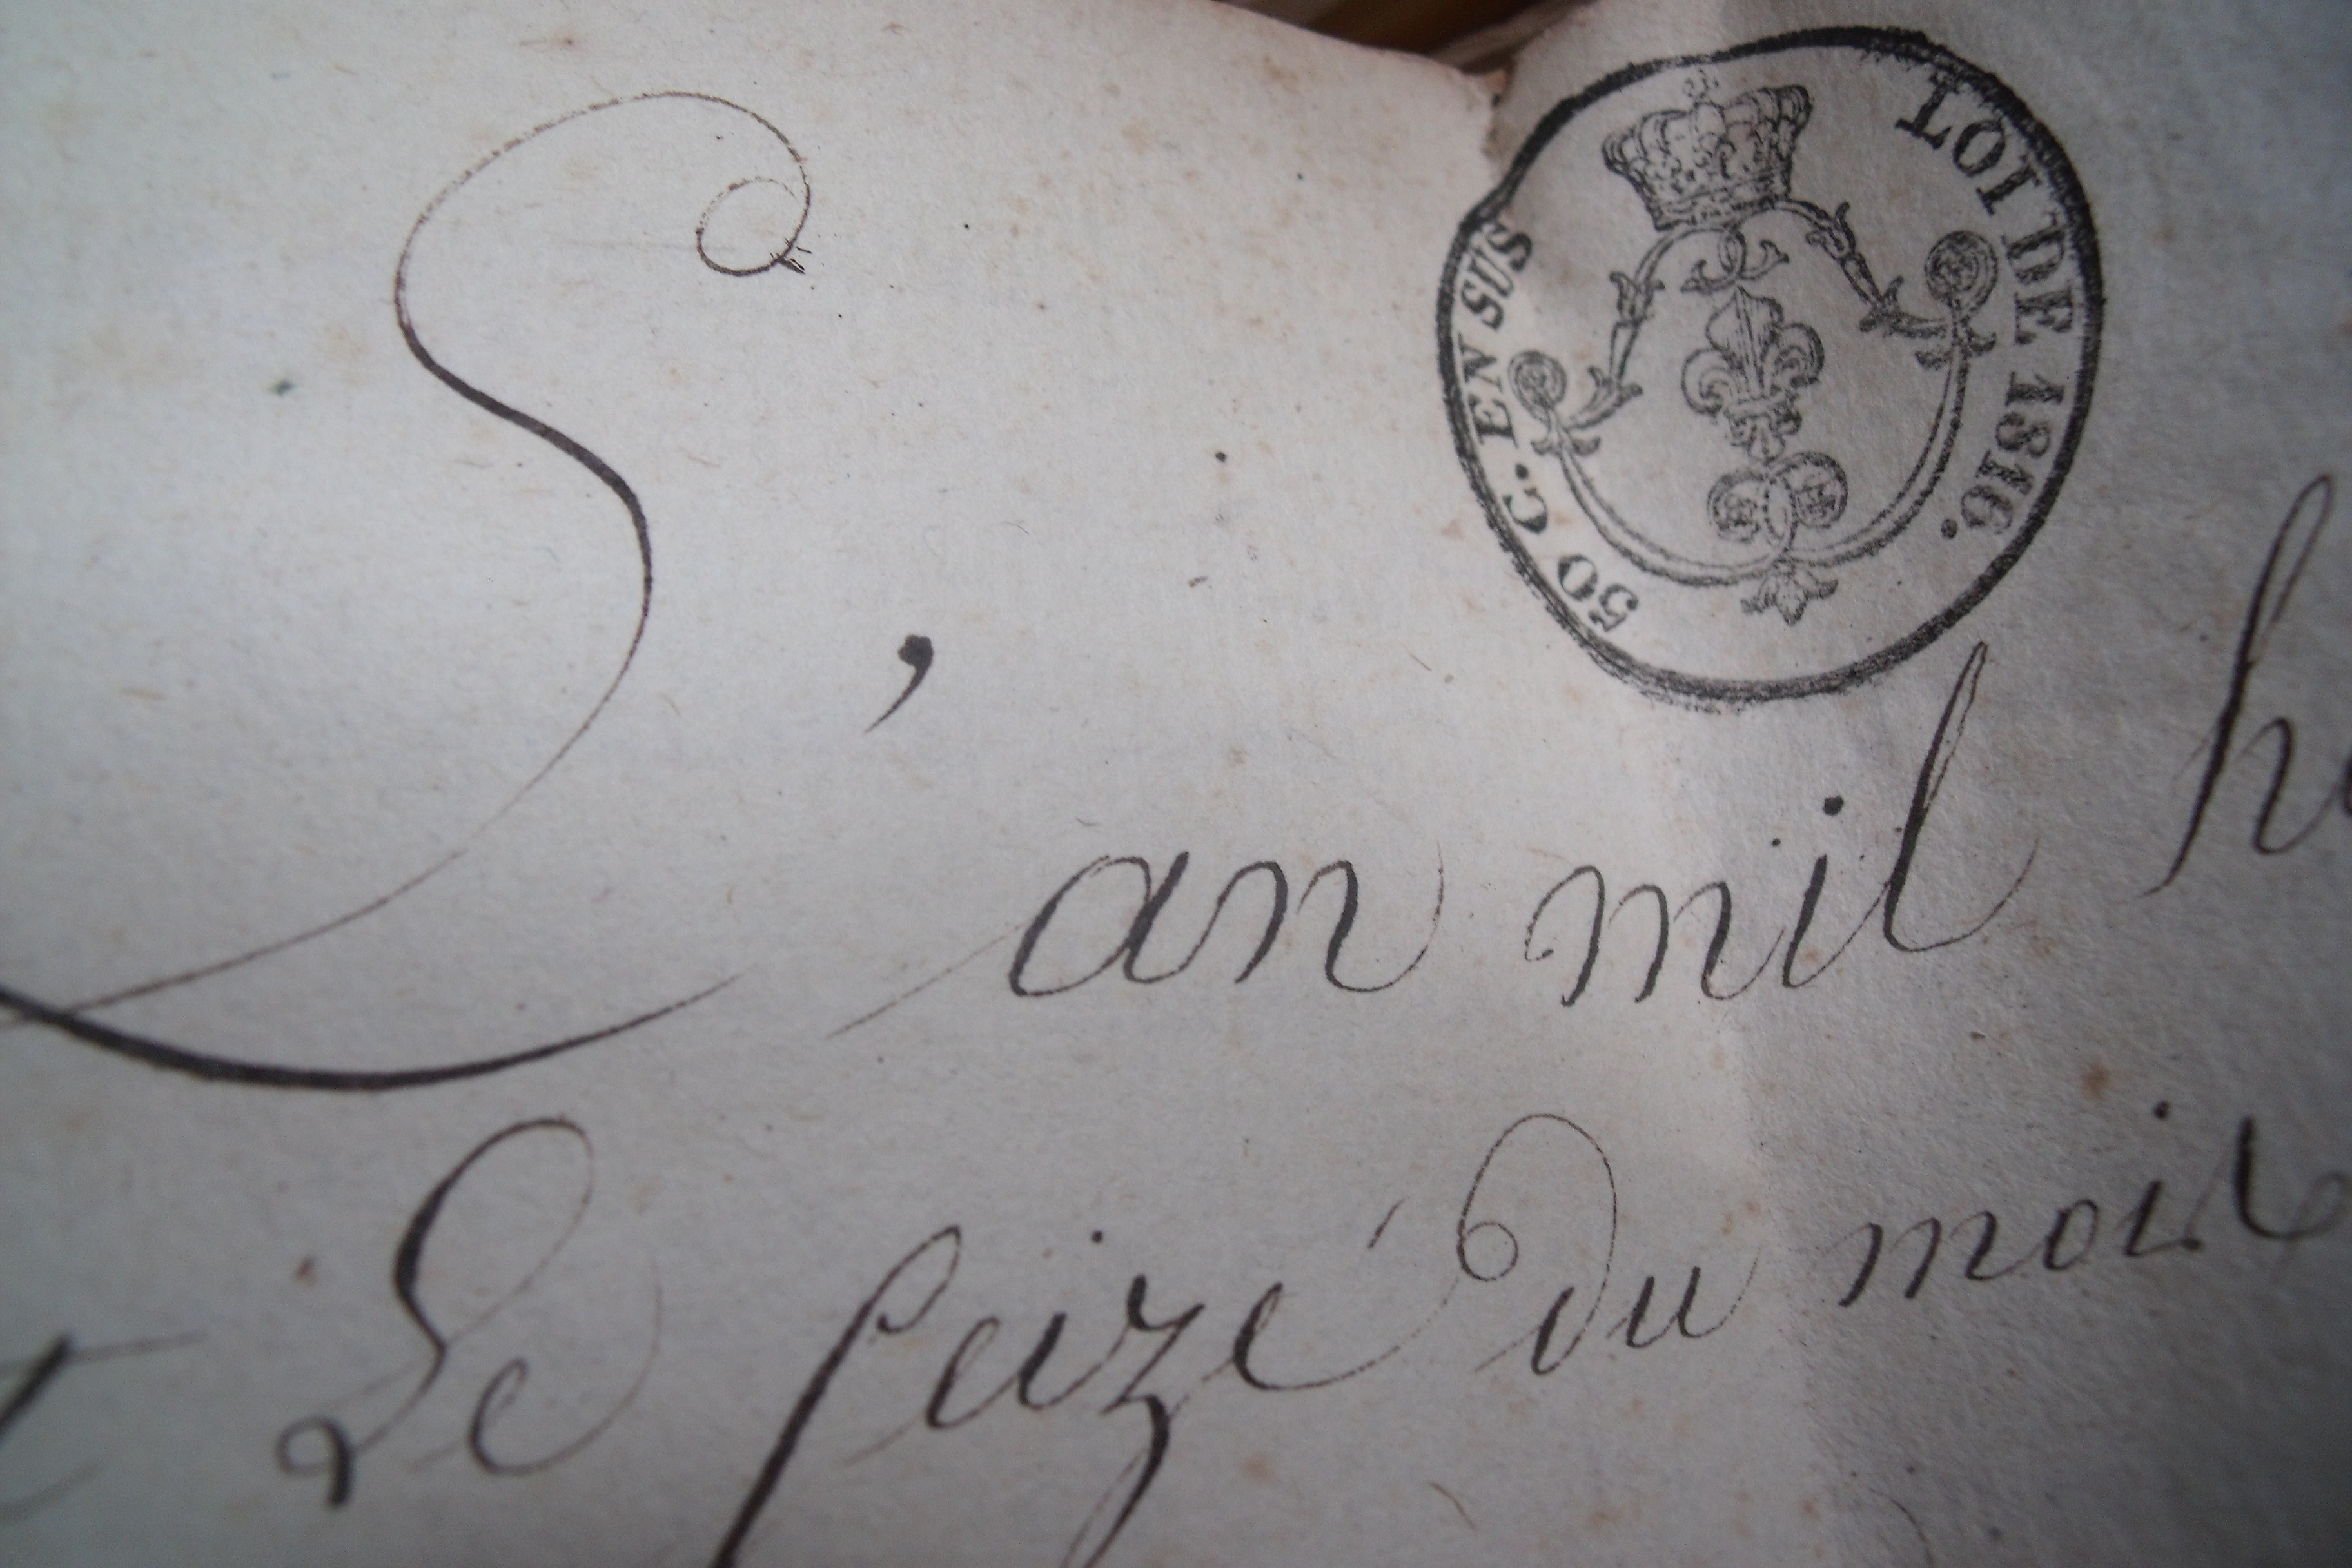 50 C. EN SUS
LOI DE 1816.
L'an mil
Le seize du mois